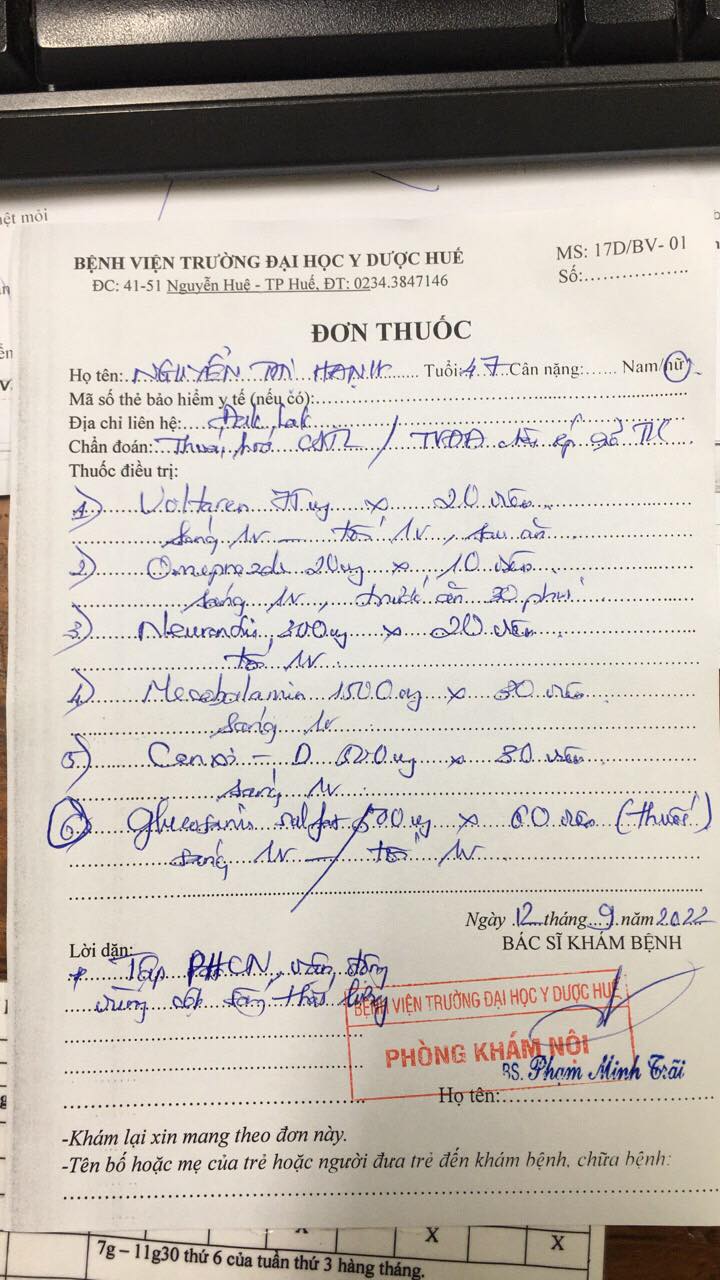 ệt mỏi
BỆNH VIỆN TRƯỜNG ĐẠI HỌC Y DƯỢC HUẾ
MS: 17D/BV- 01
ĐC: 41-51 Nguyễn Huệ - TP Huế, ĐT: 0234.3847146
Số:
ĐƠN THUỐC
Họ tên: NGUYỄN THỊ HẠNH Tuổi: 47 Cân nặng: Nam/nữ
Mã số thẻ bảo hiểm y tế (nếu có):
Địa chỉ liên hệ: Đăk Lak
Chẩn đoán: Thoái hoá CSTL / TVĐĐ
Thuốc điều trị:
1) Voltaren 75mg x 20 viên
sáng 1v — tối 1v, sau ăn
2) Omeprazole 20mg x 10 viên
sáng 1v, trước ăn 30 phút
3) 300mg x 20 viên
tối 1v
4) 1500mg x 30 viên
sáng 1v
5) x 30 viên
sáng 1v
6) Glucosamin sulfat 500mg x 60 viên
sáng 1v — tối 1v
Ngày 12 tháng 9 năm 2022
BÁC SĨ KHÁM BỆNH
Lời dặn:
* Tập PHCN, vận động
vùng cột sống thắt lưng
BỆNH VIỆN TRƯỜNG ĐẠI HỌC Y DƯỢC HUẾ
PHÒNG KHÁM NỘI
BS. Phạm Minh Trãi
Họ tên:
-Khám lại xin mang theo đơn này.
-Tên bố hoặc mẹ của trẻ hoặc người đưa trẻ đến khám bệnh, chữa bệnh:
X X
X
7g – 11g30 thứ 6 của tuần thứ 3 hàng tháng.